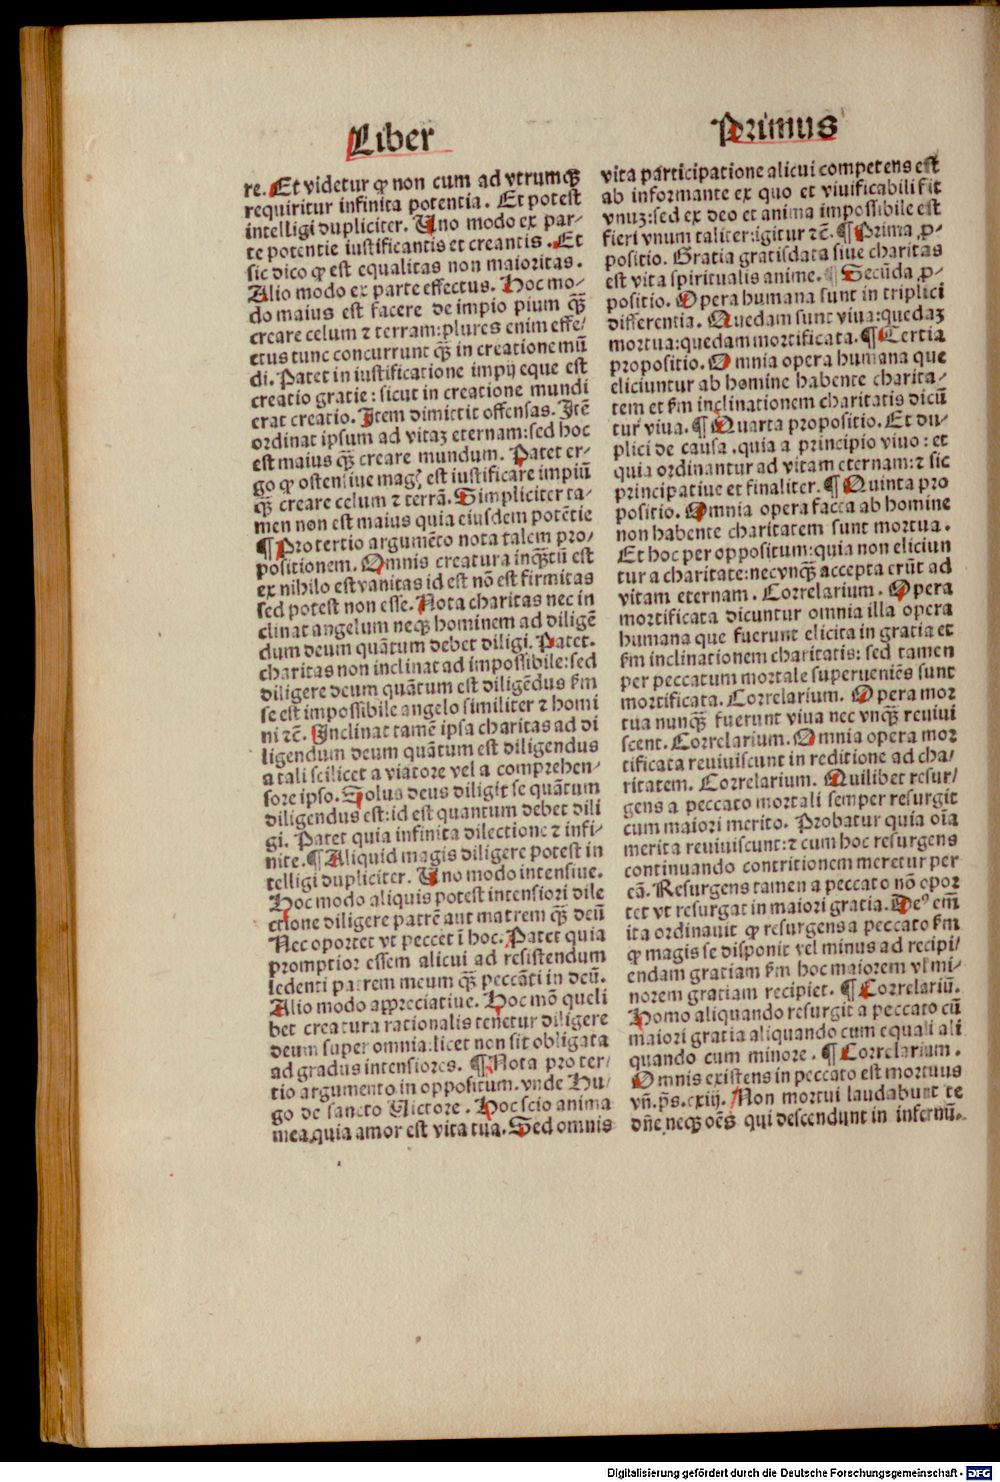 Liber
Primus
re. Et videtur ꝙ non cum ad vtrumqꝫ
requiritur infinita potentia. Et potest
intelligi dupliciter. Uno modo ex par-
te potentie iustificantis et creantis. Et
sic dico ꝙ est equalitas non maioritas.
Alio modo ex parte effectus. Hoc mo-
do maius est facere de impio pium qꝫ̃
creare celum ⁊ terram: plures enim effe/
ctus tunc concurrunt qꝫ̃ in creatione mū
di. Patet in iustificatione impij eque est
creatio gratie: sicut in creatione mundi
erat creatio. Item dimittit offensas. Itē
ordinat ipsum ad vitaꝫ eternam: sed hoc
est maius qꝫ̃ creare mundum. Patet er-
go ꝙ ostensiue magꝭ est iustificare impiū
qꝫ̃ creare celum ⁊ terrā. Simpliciter ta-
men non est maius quia eiusdem potētie
¶ Pro tertio argumēto nota talem pro/
positionem. Omnis creatura inqꝫ̃tū est
ex nihilo est vanitas id est nō est firmitas
sed potest non esse. Nota charitas nec in
clinat angelum neqꝫ hominem ad diligē
dum deum quātum debet diligi. Patet.
charitas non inclinat ad impossibile: sed
diligere deum quātum est diligēdus ẜm
se est impossibile angelo similiter ⁊ homi
ni ⁊c̄. Inclinat tamē ipsa charitas ad di
ligendum deum quātum est diligendus
a tali scilicet a viatore vel a comprehen/
sore ipso. Solus deus diligit se quātum
diligendus est: id est quantum debet dili
gi. Patet quia infinita dilectione ⁊ infi-
nite. ¶ Aliquid magis diligere potest in
telligi dupliciter. Uno modo intensiue.
Hoc modo aliquis potest intensiori dile
ctione diligere patrē aut matrem qꝫ̃ deū
Nec oportet vt peccet ī hoc. Patet quia
promptior essem alicui ad resistendum
ledenti patrem meum qꝫ̃ peccāti in deū.
Alio modo appreciatiue. Hoc mō queli
bet creatura rationalis tenetur diligere
deum super omnia: licet non sit obligata
ad gradus intensiores. ¶ Nota pro ter/
tio argumento in oppositum. vnde Hu/
go de sancto Uictore. Hoc scio anima
mea quia amor est vita tua. Sed omnis
vita participatione alicui competens est
ab informante ex quo et viuificabili fit
vnuꝫ: sed ex deo et anima impossibile est
fieri vnum taliter: igitur ⁊c̄. ¶ Prima ꝓ-
positio. Gratia gratisdata siue charitas
est vita spiritualis anime. ¶ Secūda ꝓ-
positio. Opera humana sunt in triplici
differentia. Quedam sunt viua: quedaꝫ
mortua: quedam mortificata. ¶ Tertia
propositio. Omnia opera humana que
eliciuntur ab homine habente charita/
tem et ẜm inclinationem charitatis dicū
tur viua. ¶ Quarta propositio. Et du/
plici de causa. quia a principio viuo: et
quia ordinantur ad vitam eternam: ⁊ sic
principatiue et finaliter. ¶ Quinta pro
positio. Omnia opera facta ab homine
non habente charitatem sunt mortua.
Et hoc per oppositum: quia non eliciun
tur a charitate: nec vnqꝫ̃ accepta erūt ad
vitam eternam. Correlarium. Opera
mortificata dicuntur omnia illa opera
humana que fuerunt elicita in gratia et
ẜm inclinationem charitatis: sed tamen
per peccatum mortale superueniēs sunt
mortificata. Correlarium. Opera mor
tua nunqꝫ̃ fuerunt viua nec vnqꝫ̃ reuiui
scent. Correlarium. Omnia opera mor
tificata reuiuiscunt in reditione ad cha/
ritatem. Correlarium. Quilibet resur/
gens a peccato mortali semper resurgit
cum maiori merito. Probatur quia oīa
merita reuiuiscunt: ⁊ cum hoc resurgens
continuando contritionem meretur per
eā. Resurgens tamen a peccato nō opor
tet vt resurgat in maiori gratia. Deꝰ eīm
ita ordinauit ꝙ resurgens a peccato ẜm
ꝙ magis se disponit vel minus ad recipi/
endam gratiam ẜm hoc maiorem vl̓ mi/
norem gratiam recipiet. ¶ Correlariū.
Homo aliquando resurgit a peccato cū
maiori gratia aliquando cum equali ali
quando cum minore. ¶ Correlarium.
Omnis existens in peccato est mortuus
vn̄. ps̄. cxiij. Non mortui laudabunt te
dn̄e neqꝫ oēs qui descendunt in infernū.
Digitalisierung gefördert durch die Deutsche Forschungsgemeinschaft - DFG